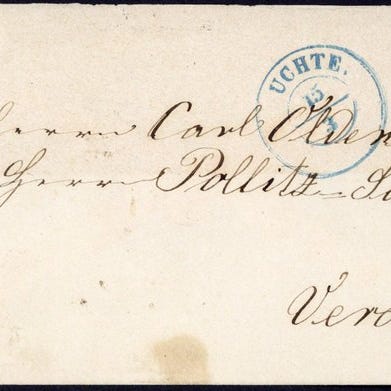 UCHTE.
15/3
Herrn Carl Olden
Herr Pollitz = S
Verd